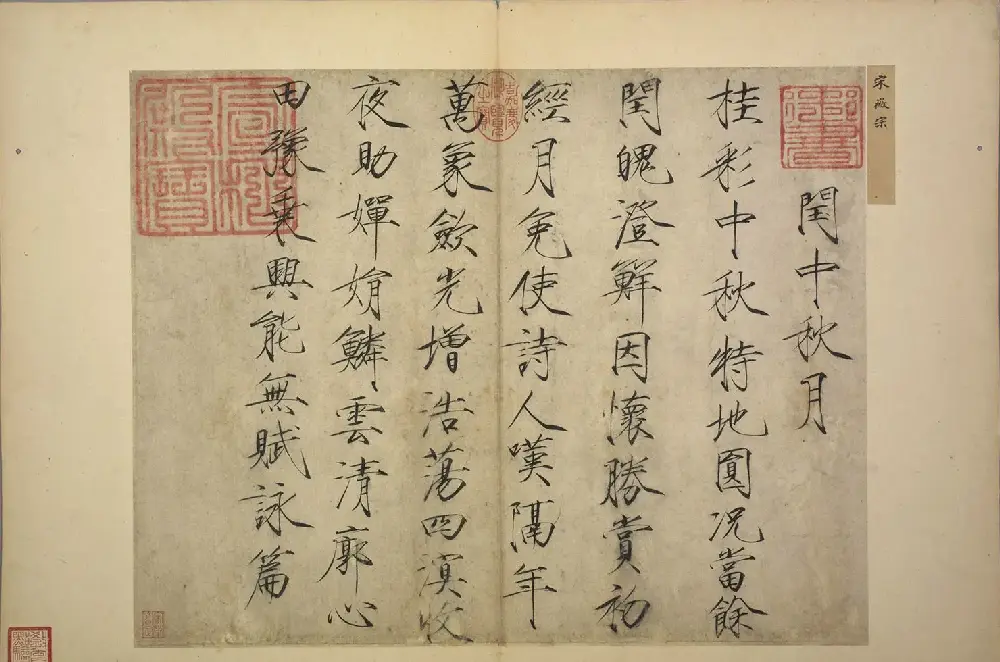 宋徽宗
御書
閏中秋月
桂彩中秋特地圓况當餘
閏魄澄鮮因懷勝賞初
經月免使詩人嘆隔年
萬象歛光增浩蕩四溟收
夜助嬋娟鱗〻雲清廓心
田豫乗興能無賦詠篇
嘉慶御覽之寶